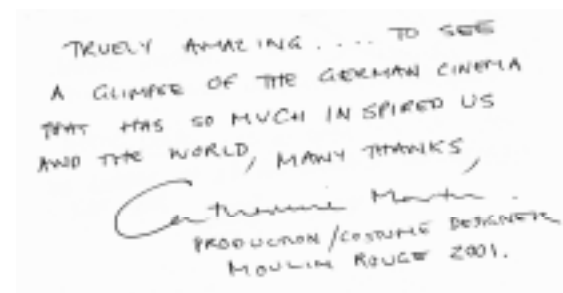 TRUELY AMAZING .... TO SEE
A GLIMPSE OF THE GERMAN CINEMA
THAT HAS SO MUCH INSPIRED US
AND THE WORLD, MANY THANKS,
Catherine Martin.
PRODUCTION/COSTUME DESIGNER
MOULIN ROUGE 2001.